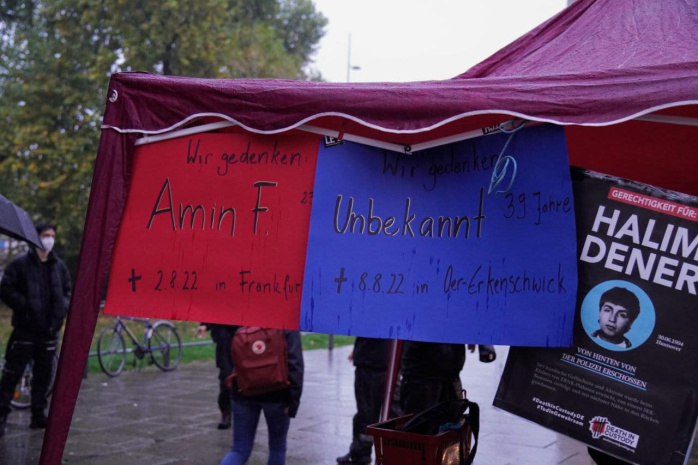 Wir gedenken:
Amin F.
+ 2.8.22 in Frankfur
Wir gedenken
Unbekannt 39 Jahre
+ 8.8.22 in Oer-Erkenschwick
GERECHTIGKEIT FÜR:
HALIM
DENER
30.06.1994
Hannover
VON HINTEN VON
DER POLIZEI ERSCHOSSEN
#DeathinCustodyDE
#TodinGewahrsam
DEATH IN
CUSTODY